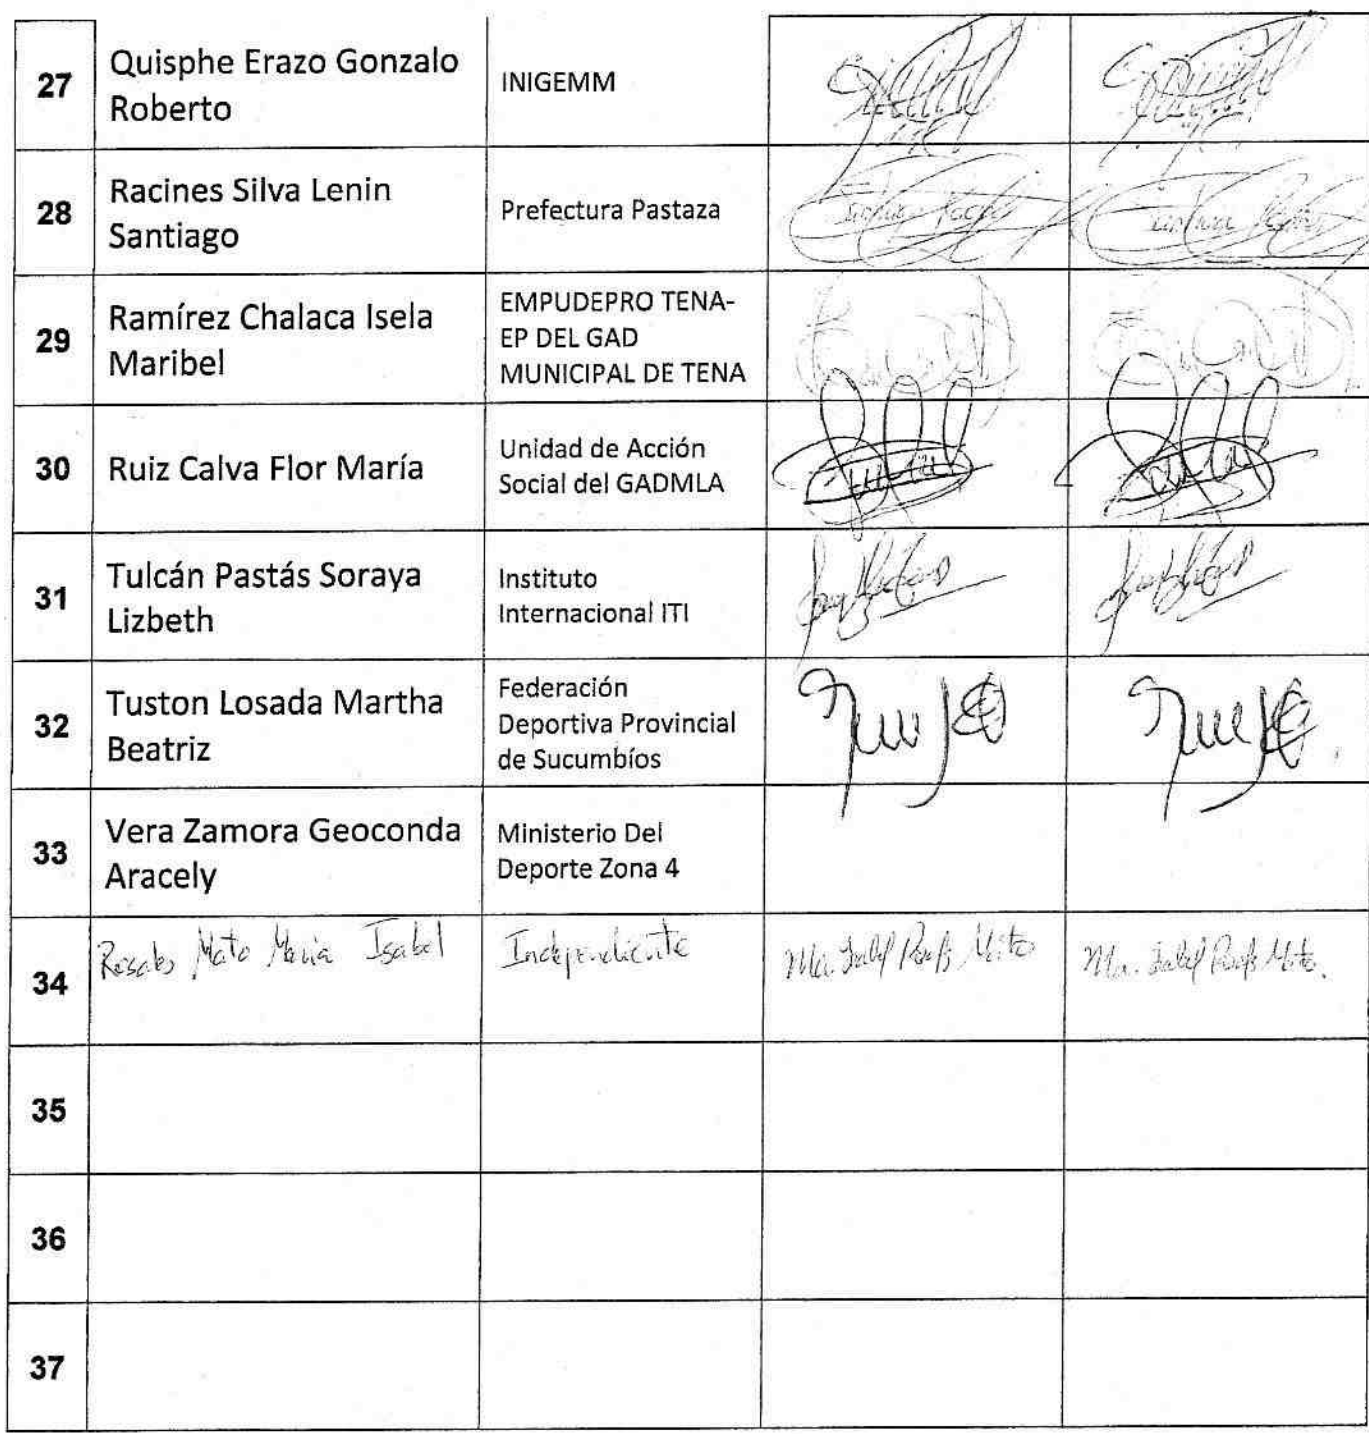 27
Quisphe Erazo Gonzalo
Roberto
INIGEMM
28
Racines Silva Lenin
Santiago
Prefectura Pastaza
29
Ramírez Chalaca Isela
Maribel
EMPUDEPRO TENA-
EP DEL GAD
MUNICIPAL DE TENA
30
Ruiz Calva Flor María
Unidad de Acción
Social del GADMLA
31
Tulcán Pastás Soraya
Lizbeth
Instituto
Internacional ITI
32
Tuston Losada Martha
Beatriz
Federación
Deportiva Provincial
de Sucumbíos
33
Vera Zamora Geoconda
Aracely
Ministerio Del
Deporte Zona 4
34
Rosales Mato María Isabel
Independiente
35
36
37